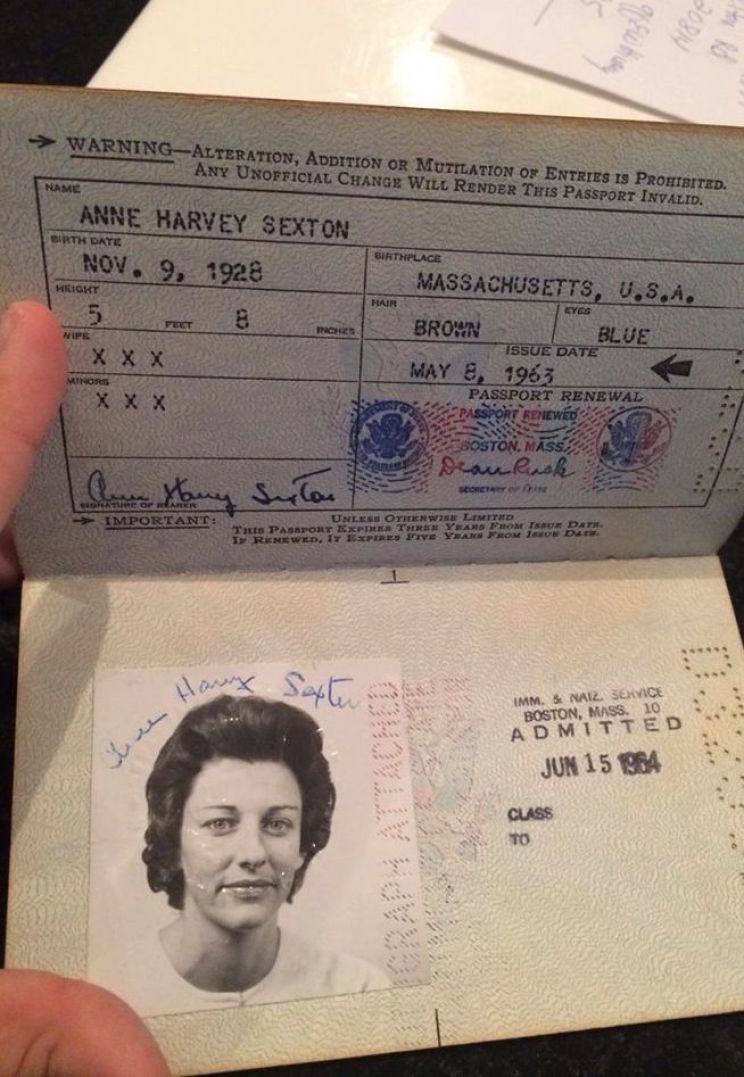 WARNING—ALTERATION, ADDITION OR MUTILATION OF ENTRIES IS PROHIBITED.
ANY UNOFFICIAL CHANGE WILL RENDER THIS PASSPORT INVALID.
NAME
ANNE HARVEY SEXTON
BIRTH DATE
NOV. 9, 1928
BIRTHPLACE
MASSACHUSETTS, U.S.A.
HEIGHT
5 FEET 8 INCHES
HAIR
BROWN
EYES
BLUE
WIFE
X X X
ISSUE DATE
MAY 8, 1963
MINORS
X X X
PASSPORT RENEWAL
PASSPORT RENEWED
BOSTON, MASS.
Dean Rusk
SECRETARY OF STATE
Anne Harvey Sexton
SIGNATURE OF BEARER
IMPORTANT:
UNLESS OTHERWISE LIMITED
THIS PASSPORT EXPIRES THREE YEARS FROM ISSUE DATE.
IF RENEWED, IT EXPIRES FIVE YEARS FROM ISSUE DATE.
1
Anne Harvey Sexton
GRAPH ATTACHED
IMM. & NATZ. SERVICE
BOSTON, MASS. 10
ADMITTED
JUN 15 1964
CLASS
TO